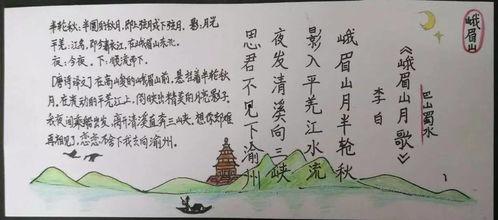 峨眉山
巴山蜀水
《峨眉山月歌》
李白
峨眉山月半轮秋
影入平羌江水流
夜发清溪向三峡
思君不见下渝州
半轮秋：半圆的秋月，即上弦月或下弦月。影：月光
平羌：江名，即青衣江，在峨眉山东北。
夜：今夜。下：顺流而下。
[唐诗译文]在高峻的峨眉山前，悬挂着半轮秋
月。在流动的平羌江上，倒映出精美的月亮影子。
我夜间乘船出发，离开清溪直奔三峡。想你却难
再相见，恋恋不舍下我去向渝州。